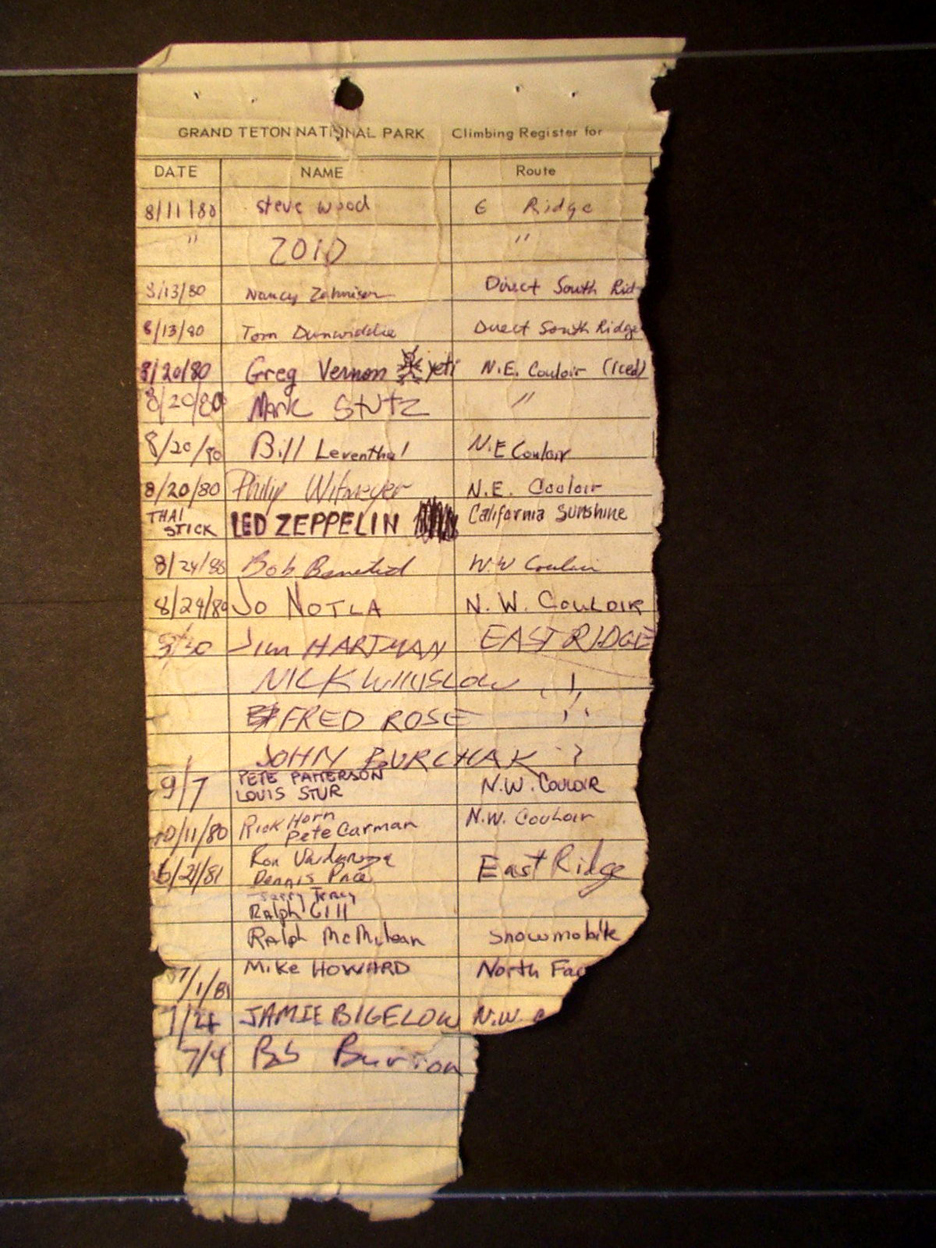 GRAND TETON NATIONAL PARK Climbing Register for
DATE NAME Route
8/11/80 steve wood E Ridge
" ZOID "
8/13/80 Nancy Direct South Rid
8/13/80 Tom Dunwiddie Direct South Ridge
8/20/80 Greg Vernon yeti N.E. Couloir (Iced)
8/20/80 Mark Stutz "
8/20/80 Bill Leventhal N.E Couloir
8/20/80 Philip Witmeyer N.E. Couloir
THAI STICK LED ZEPPELIN California Sunshine
8/24/80 Bob
8/24/80 Jo NOTLA N.W. COULOIR
Jim HARTMAN EAST RIDGE
NICK WINSLOW "
FRED ROSE "
JOHN BURCHAK ?
9/7 PETE PATTERSON N.W. COULOIR
LOUIS STUR
10/11/80 Rick Horn N.W. Couloir
Pete Carman
6/21/81 Ron East Ridge
Dennis
Ralph Gill
Ralph Snowmobile
7/1/81 Mike HOWARD North Fac
7/4 JAMIE BIGELOW N.W.
7/4 Bob Burton